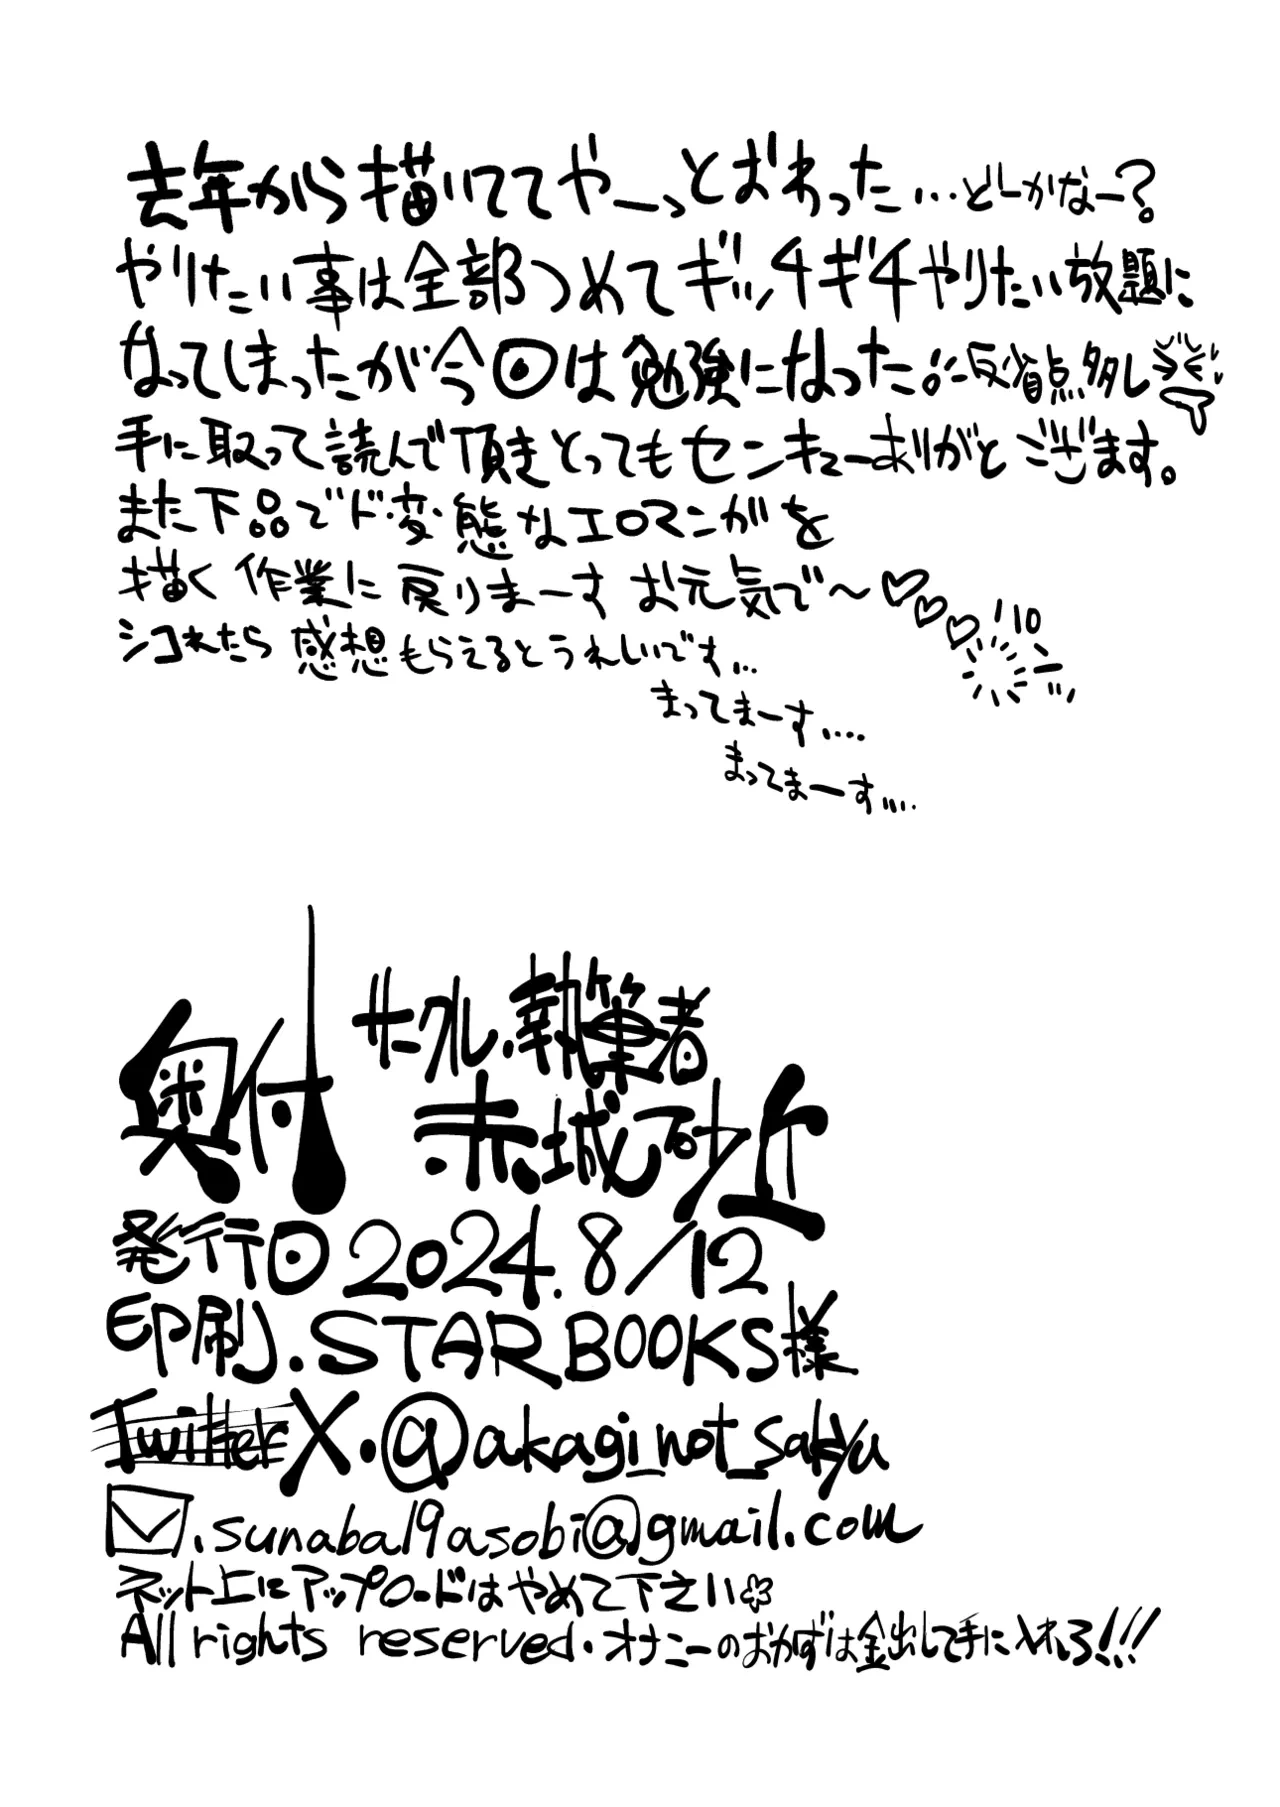 去年から描いててやーっとおわった…どーかなー?
やりたい事は全部つめてギッチギチやりたい放題に
なってしまったが今回は勉強になった!!反省点多し
手に取って読んで頂きとってもセンキューありがとござます。
また下品でド変態なエロマンガを
描く作業に戻りまーす お元気で〜♡♡♡
シコれたら感想もらえるとうれしいです…
まってまーす….
まってまーす….
奥付
サークル.執筆者
赤城砂近
発行日2024.8/12
印刷.STARBOOKS様
Twitter X.@akagi_not_sakyu
.sunaba19asobi@gmail.com
ネット上にアップロードはやめて下さい
All rights reserved.オナニーのおかずは金出して手に入れろ!!!